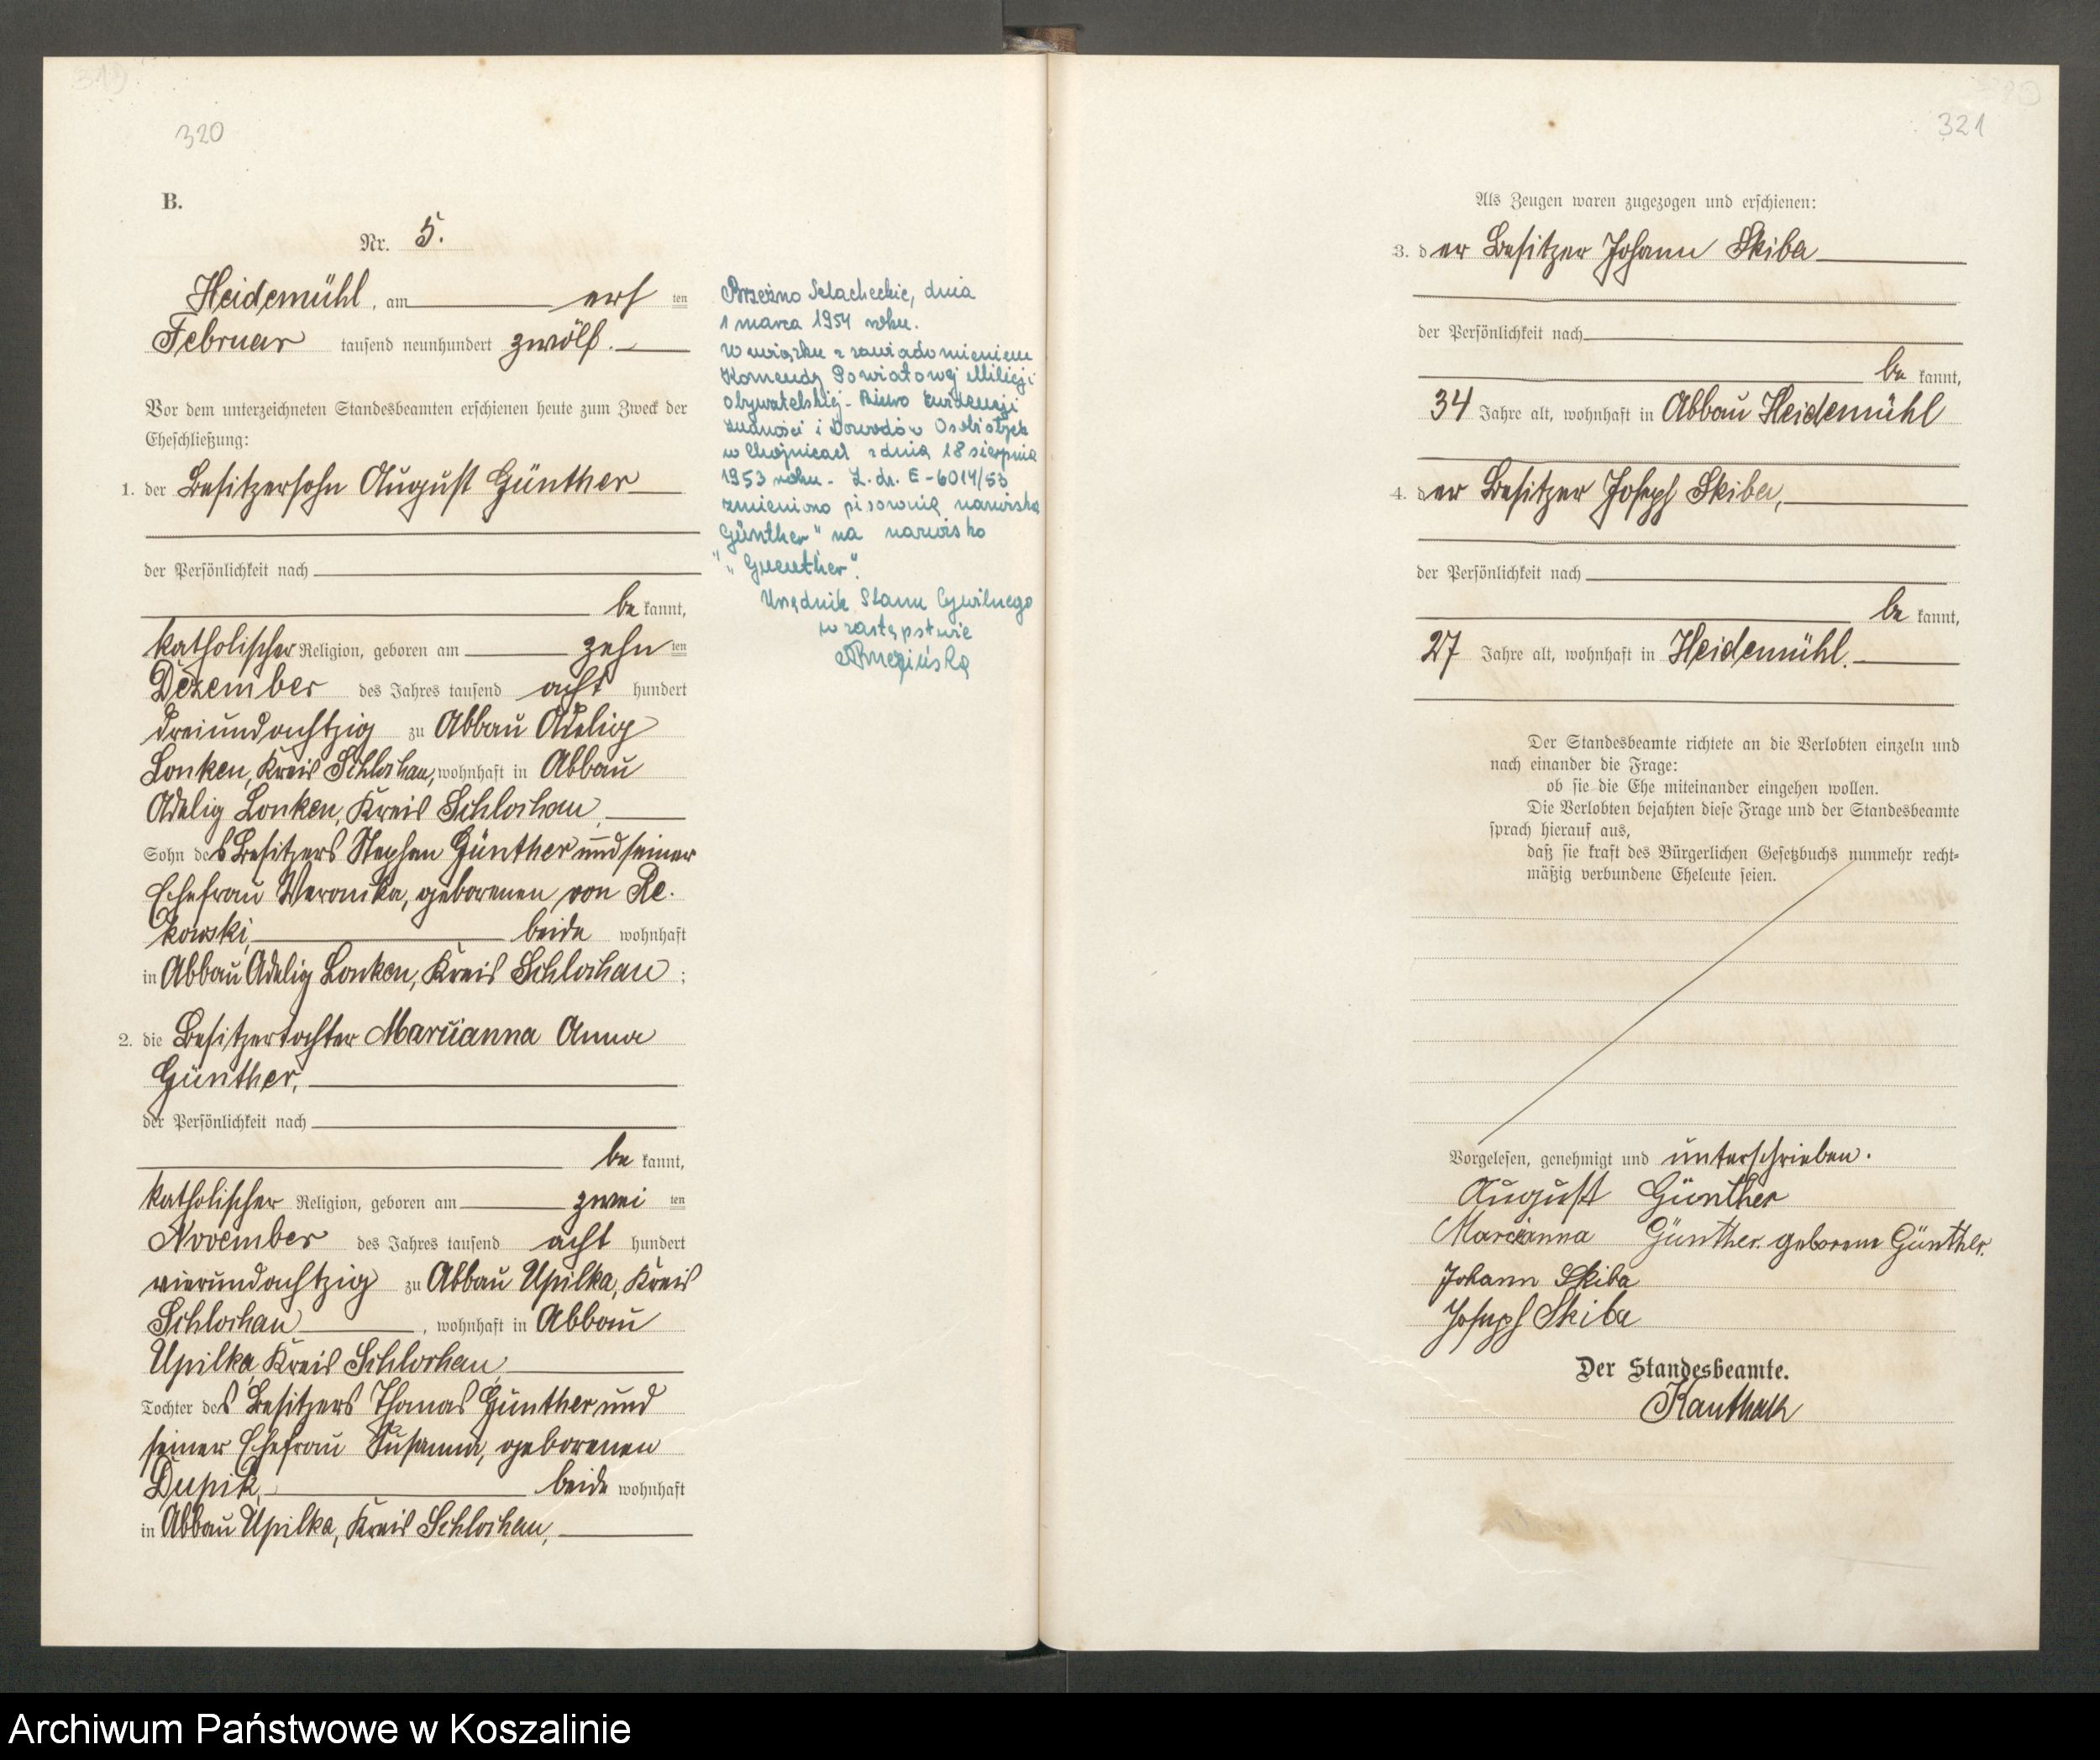 320
B.
Nr. 5.
Heidemühl, am acht ten
Februar tausend neunhundert zwölf.
Vor dem unterzeichneten Standesbeamten erschienen heute zum Zweck der
Eheschließung:
1. der Besitzersohn August Günther
der Persönlichkeit nach
be kannt,
katholischer Religion, geboren am zehn ten
Dezember des Jahres tausend acht hundert
dreiundachtzig zu Abbau Adelig
Lonken, Kreis Schlochau, wohnhaft in Abbau
Adelig Lonken, Kreis Schlochau,
Sohn des Besitzers Stephan Günther und seiner
Ehefrau Veronika, geborenen von Re-
kowski, beide wohnhaft
in Abbau Adelig Lonken, Kreis Schlochau ;
2. die Besitzertochter Marianna Anna
Günther,
der Persönlichkeit nach
be kannt,
katholischer Religion, geboren am zwei ten
November des Jahres tausend acht hundert
vierundachtzig zu Abbau Upilka, Kreis
Schlochau, wohnhaft in Abbau
Upilka, Kreis Schlochau,
Tochter des Besitzers Thomas Günther und
seiner Ehefrau Susanna, geborenen
Dupik, beide wohnhaft
in Abbau Upilka, Kreis Schlochau,
Brzeźno Szlacheckie, dnia
1 marca 1954 roku.
W związku z zawiadomieniem
Komendy Powiatowej Milicji
Obywatelskiej - Biuro Ewidencji
Ludności i Dowodów Osobistych
w Chojnicach z dnia 18 sierpnia
1953 roku - L. dz. E-6014/53
zmieniono pisownię nazwiska
Günther" na nazwisko
" „Guenther".
Urzędnik Stanu Cywilnego
w zastępstwie
321
Als Zeugen waren zugezogen und erschienen:
3. der Besitzer Johann Skiba
der Persönlichkeit nach
be kannt,
34 Jahre alt, wohnhaft in Abbau Heidemühl
4. der Besitzer Joseph Skiba,
der Persönlichkeit nach
be kannt,
27 Jahre alt, wohnhaft in Heidemühl.
Der Standesbeamte richtete an die Verlobten einzeln und
nach einander die Frage:
ob sie die Ehe miteinander eingehen wollen.
Die Verlobten bejahten diese Frage und der Standesbeamte
sprach hierauf aus,
daß sie kraft des Bürgerlichen Gesetzbuchs nunmehr recht-
mäßig verbundene Eheleute seien.
Vorgelesen, genehmigt und unterschrieben.
August Günther
Marianna Günther. geborene Günther.
Johann Skiba
Joseph Skiba
Der Standesbeamte.
Archiwum Państwowe w Koszalinie